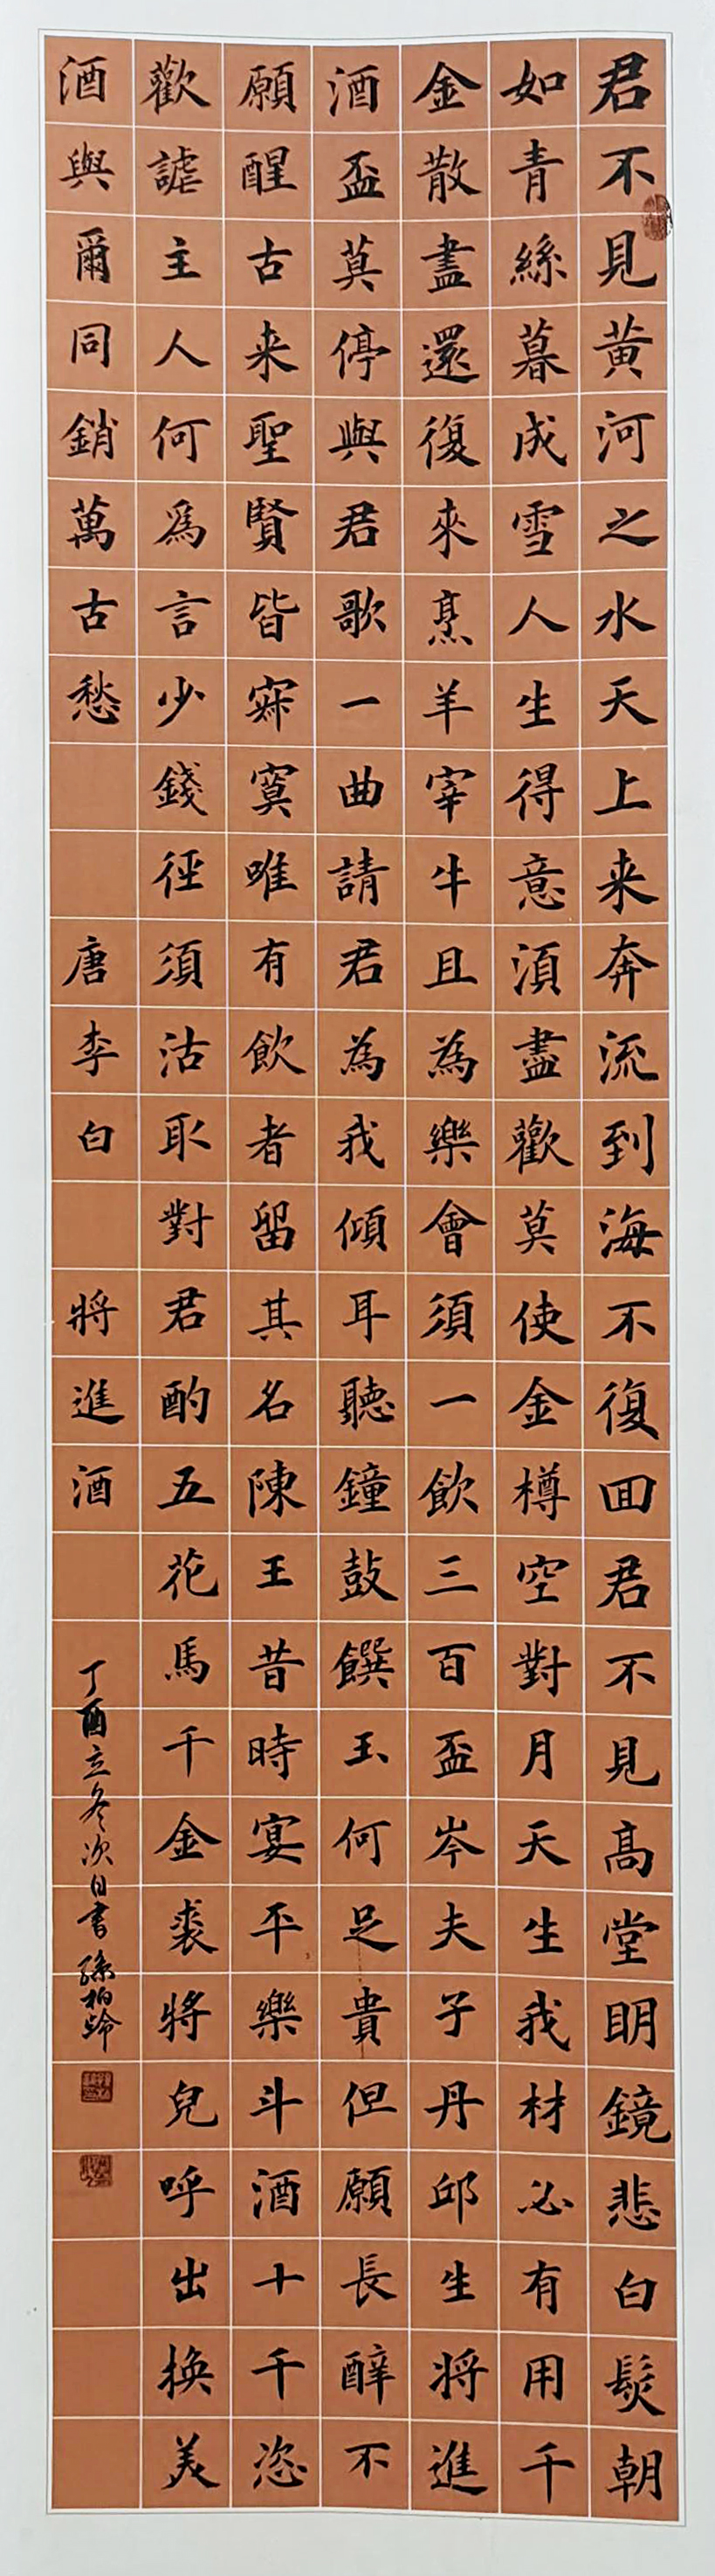 君不見黄河之水天上来奔流到海不復回君不見高堂明鏡悲白髮朝
如青絲暮成雪人生得意須盡歡莫使金樽空對月天生我材必有用千
金散盡還復來烹羊宰牛且為樂會須一飲三百盃岑夫子丹邱生將進
酒盃莫停與君歌一曲請君為我傾耳聽鐘鼓饌玉何足貴但願長醉不
願醒古来聖賢皆寂寞唯有飲者留其名陳王昔時宴平樂斗酒十千恣
歡謔主人何為言少錢徑須沽取對君酌五花馬千金裘將兒呼出換美
酒與爾同銷萬古愁 唐李白 將進酒 丁酉立冬次日書 孫柏齡